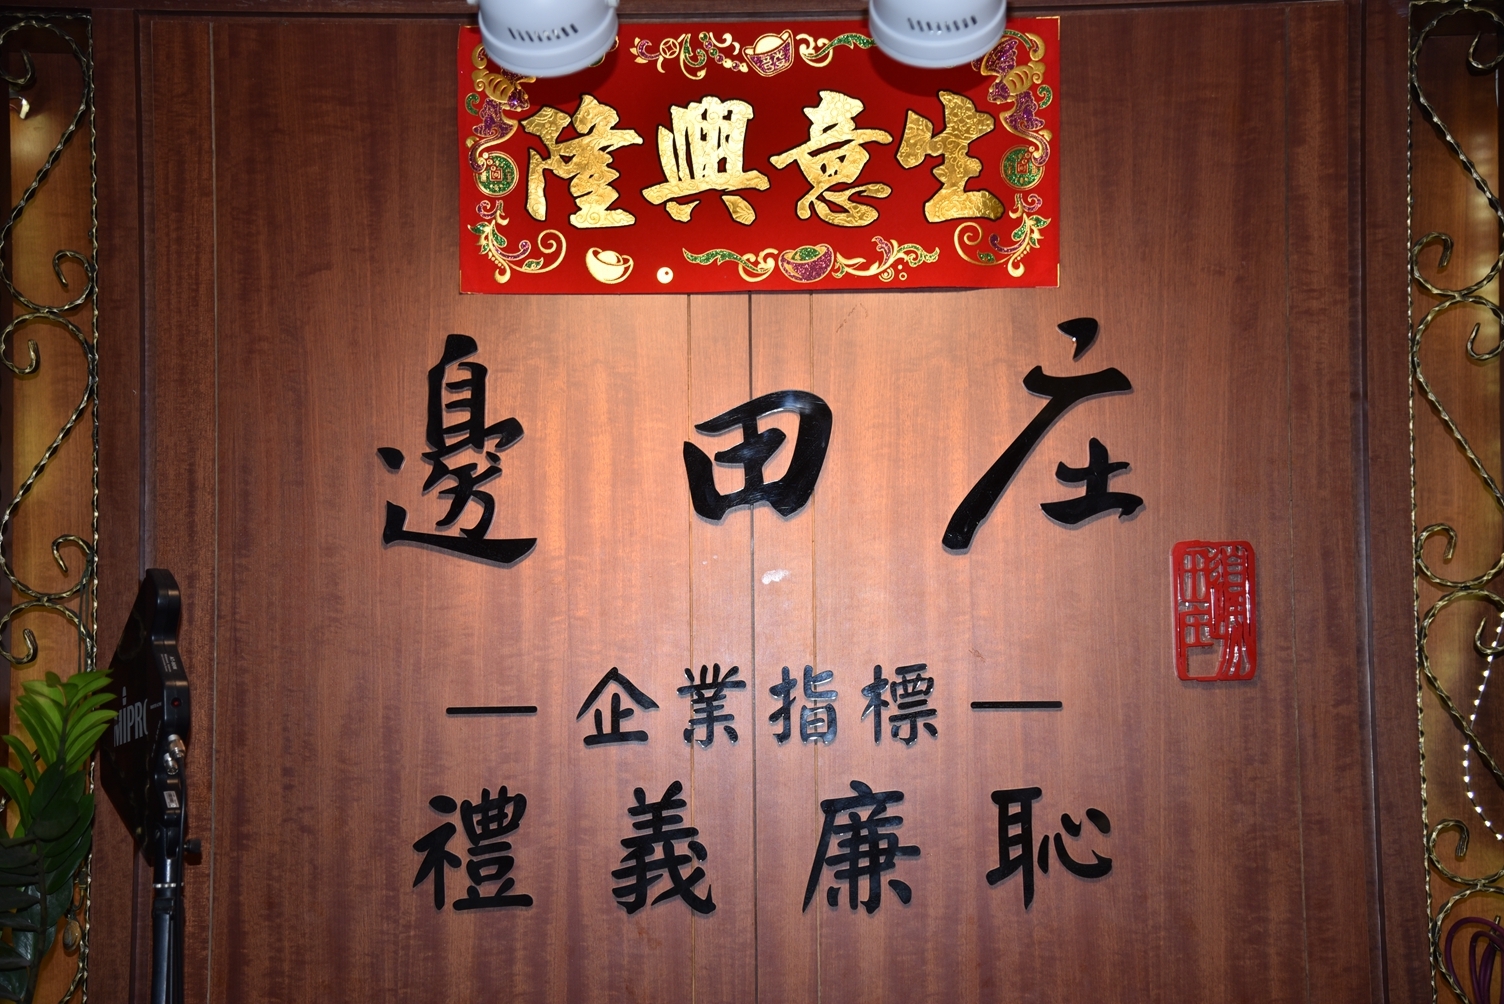 生意興隆
邊田庄
企業指標
禮義廉恥
MIPRO